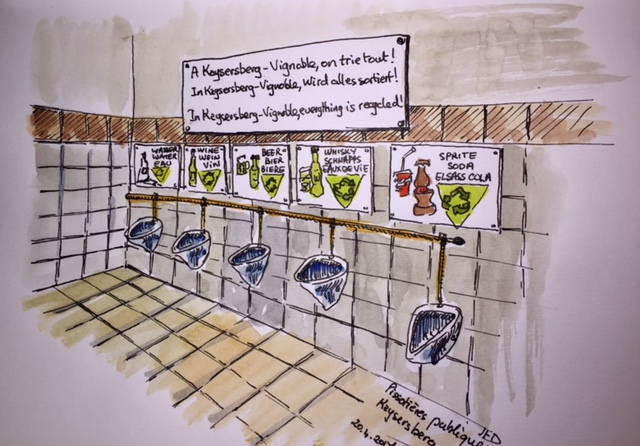 A Kaysersberg-Vignoble, on trie tout!
In Kaysersberg-Vignoble, wird alles sortiert!
In Kaysersberg-Vignoble, everything is recycled!
WASSER
WATER
EAU
WINE
WEIN
VIN
BEER
BIER
BIERE
WHISKY
SCHNAPPS
EAUX DE VIE
SPRITE
SODA
ELSASS COLA
Pissotières publiques
Kaysersberg
JED
20.4.